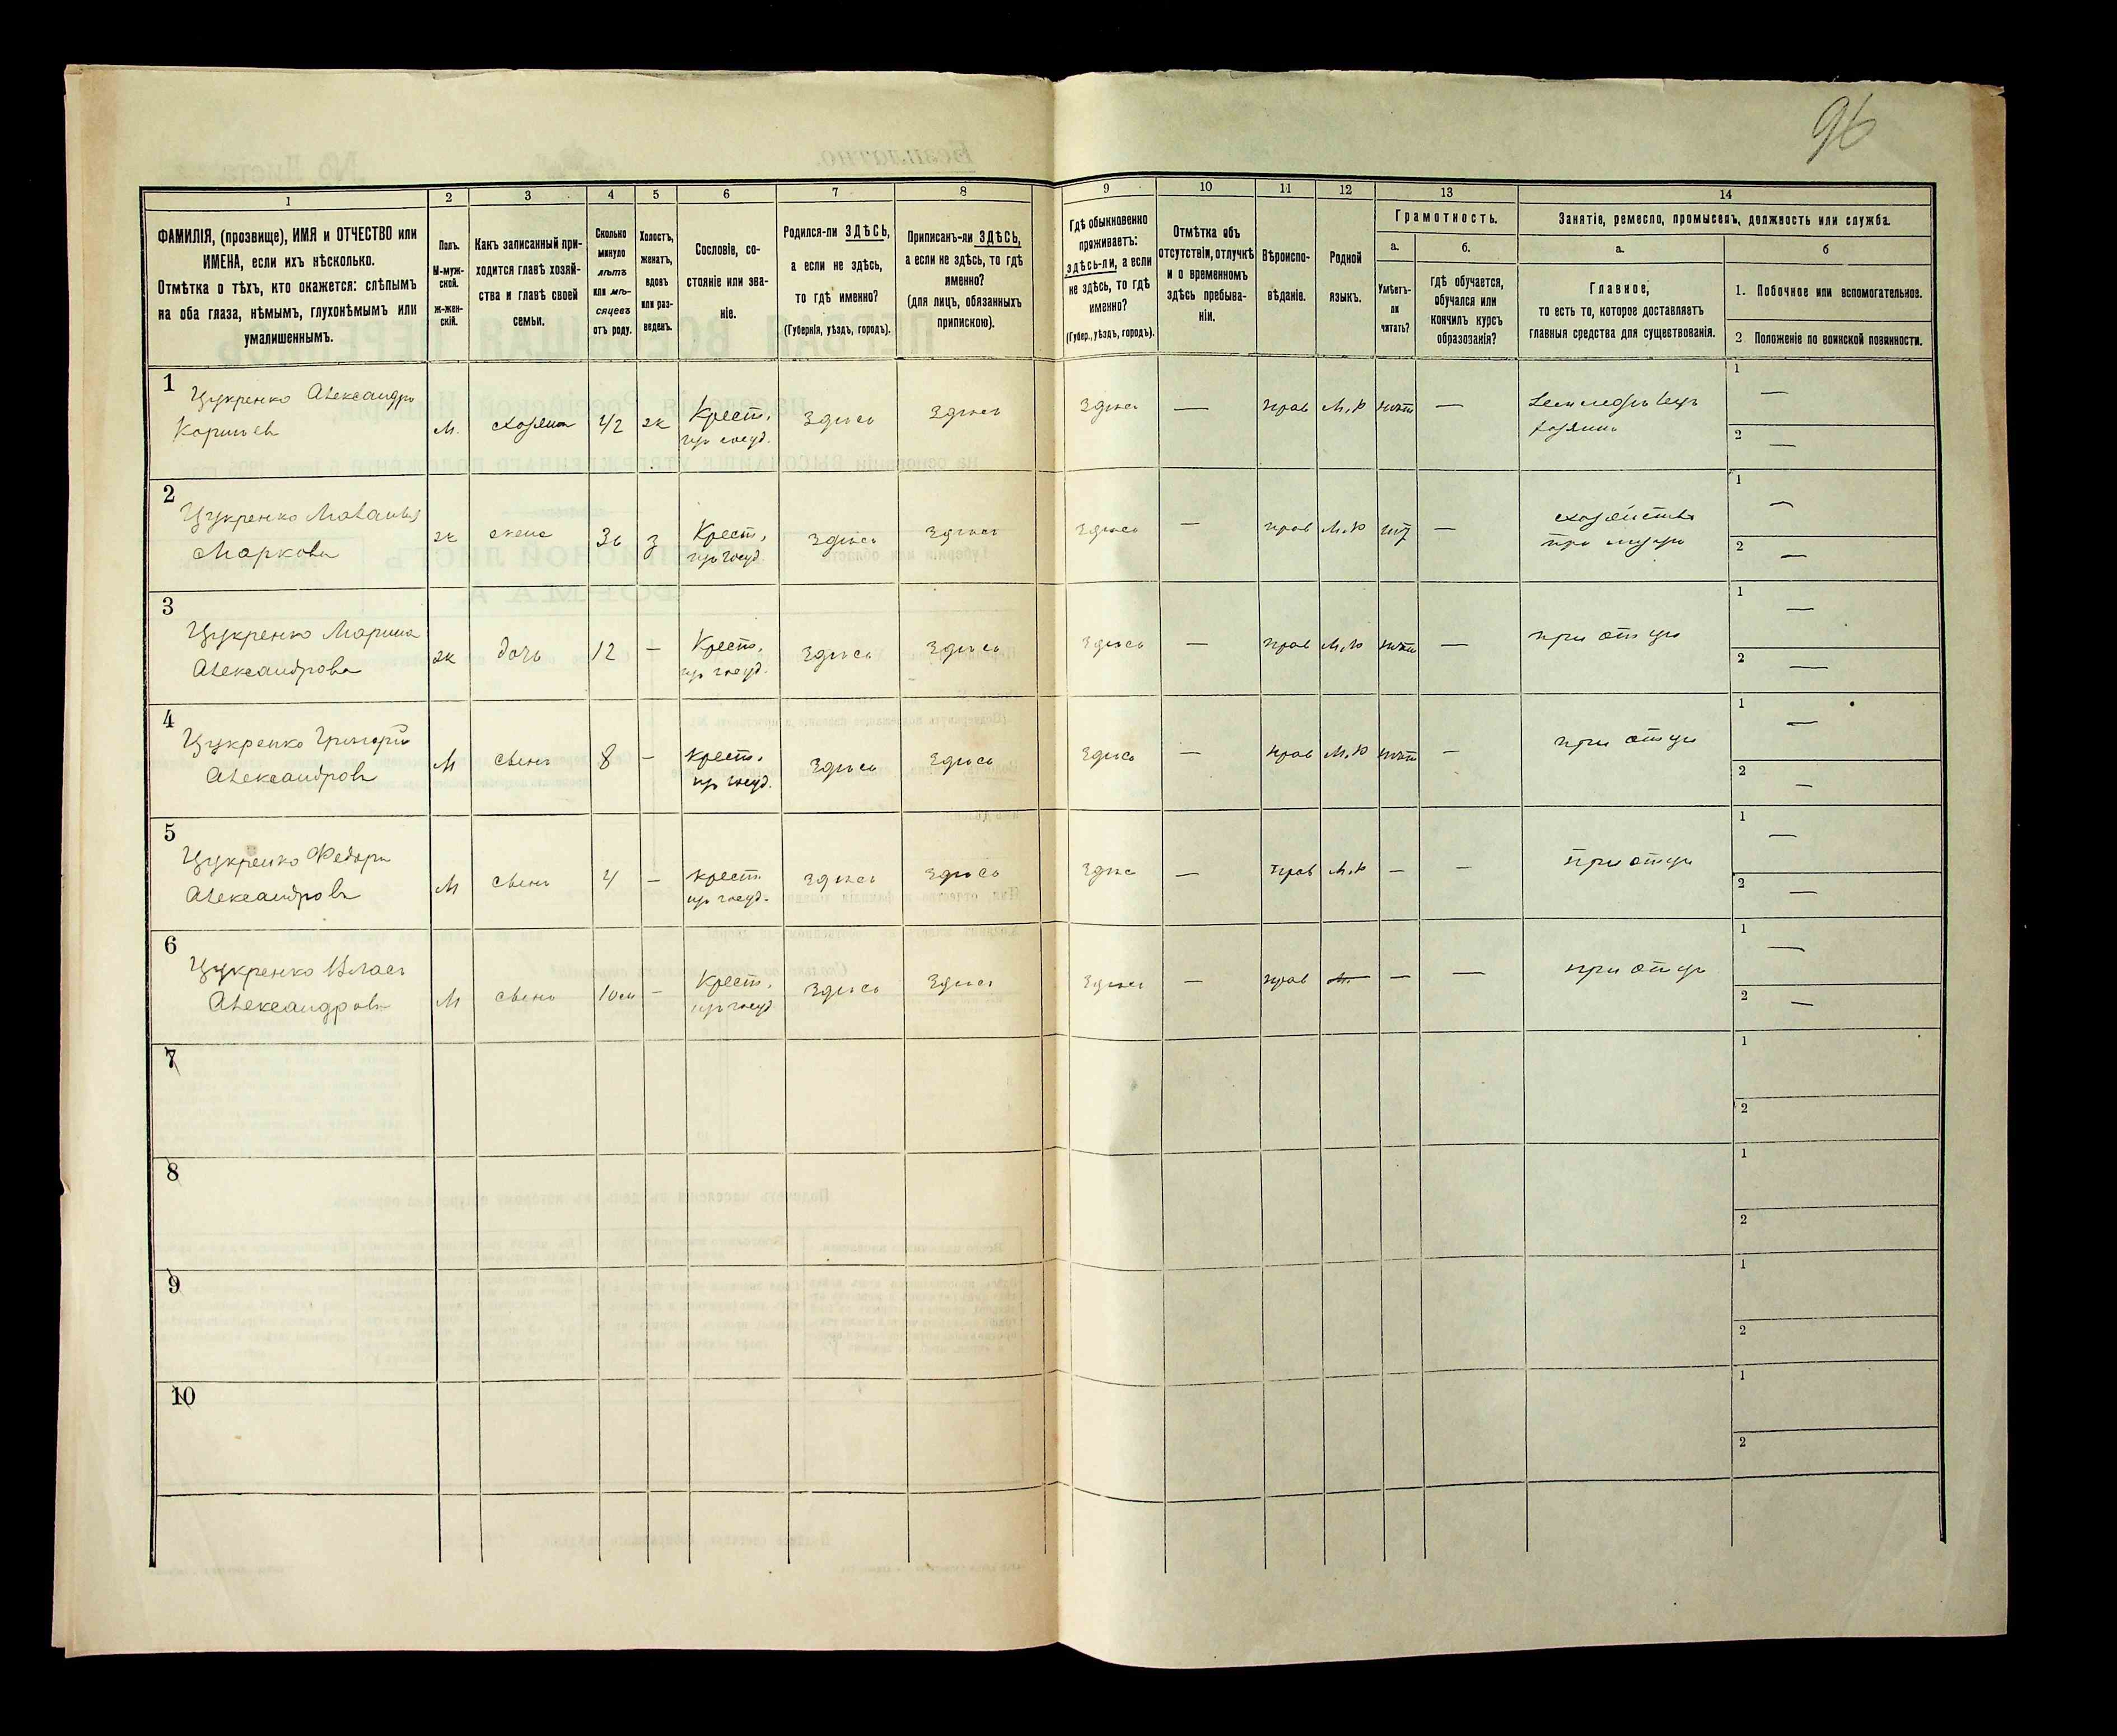 96
1
2
3
4
5
6
7
8
9
10
11
12
13
14
ФАМИЛІЯ, (прозвище), ИМЯ и ОТЧЕСТВО или
ИМЕНА, если ихъ нѣсколько.
Отмѣтка о тѣхъ, кто окажется: слѣпымъ
на оба глаза, нѣмымъ, глухонѣмымъ или
умалишеннымъ.
Полъ.
М-муж-
ской.
ж-жен-
скій.
Какъ записанный при-
ходится главѣ хозяй-
ства и главѣ своей
семьи.
Сколько
минуло
лѣтъ
или мѣ-
сяцевъ
отъ роду.
Холостъ,
женатъ,
вдовъ
или раз-
веденъ.
Сословіе, со-
стояніе или зва-
ніе.
Родился-ли ЗДѢСЬ,
а если не здѣсь,
то гдѣ именно?
(Губернія, уѣздъ, городъ).
Приписанъ-ли ЗДѢСЬ,
а если не здѣсь, то гдѣ
именно?
(для лицъ, обязанныхъ
припискою).
Гдѣ обыкновенно
проживаетъ:
здѣсь-ли, а если
не здѣсь, то гдѣ
именно?
(Губер., уѣздъ, городъ).
Отмѣтка объ
отсутствіи, отлучкѣ
и о временномъ
здѣсь пребыва-
ніи.
Вѣроиспо-
вѣданіе.
Родной
языкъ.
Грамотность.
а.
Умѣетъ-
ли
читать?
б.
гдѣ обучается,
обучался или
кончилъ курсъ
образованія?
Занятіе, ремесло, промыселъ, должность или служба.
а.
Главное,
то есть то, которое доставляетъ
главныя средства для существованія.
б
1. Побочное или вспомогательное.
2. Положеніе по воинской повинности.
1
Цукренко Александръ
м.
хозяинъ
42
ж
Крест.
здѣсь
здѣсь
здѣсь
—
прав
М.р
нѣтъ
—
хозяинъ
1 —
2 —
2
Цукренко
Маркова
ж
жена
36
з
Крест.
здѣсь
здѣсь
здѣсь
—
прав
М.р
—
при мужѣ
1 —
2 —
3
Цукренко Марина
Александрова
ж
дочь
12
—
Крест.
здѣсь
здѣсь
здѣсь
—
прав
М.р
нѣтъ
—
при отцѣ
1 —
2 —
4
Цукренко Григорій
Александровъ
М
сынъ
8
—
Крест.
здѣсь
здѣсь
здѣсь
—
прав
М.р
нѣтъ
—
при отцѣ
1 —
2 —
5
Цукренко Федоръ
Александровъ
М
сынъ
4
—
крест.
здѣсь
здѣсь
здѣсь
—
прав
М.р
—
—
при отцѣ
1 —
2 —
6
Цукренко Власъ
Александровъ
М
сынъ
10м
—
Крест.
здѣсь
здѣсь
здѣсь
—
прав
—
—
при отцѣ
1 —
2 —
7
1
2
8
1
2
9
1
2
10
1
2